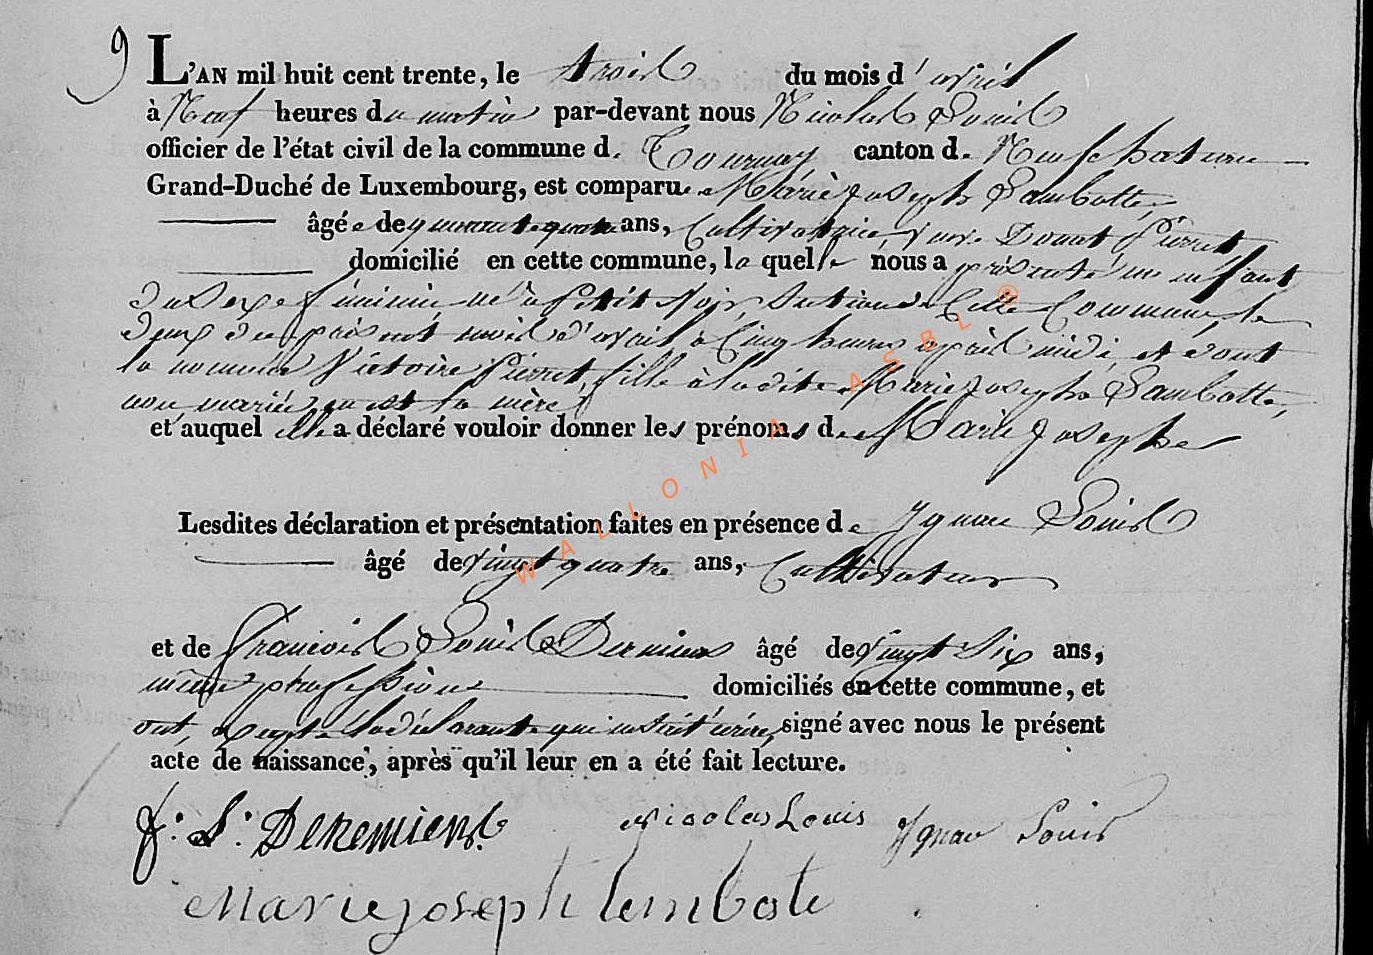 9 L'AN mil huit cent trente, le trois du mois d'avril
à Neuf heures du matin par-devant nous Nicolas Louis
officier de l'état civil de la commune d. Tournay canton d. Neufchateau
Grand-Duché de Luxembourg, est comparue Marie Joseph Lambotte,
âgée de quarante quatre ans, Cultivatrice, veuve Donat Pierret,
domicilié en cette commune, laquelle nous a présenté un enfant
du sexe féminin, né à Petit Voir, Section de Cette Commune, le
deux du présent mois d'avril à Cinq heures après midi, et dont
la nommée Victoire Pierret, fille à ladite Marie Joseph Lambotte,
non mariée, en est la mère,
et auquel elle a déclaré vouloir donner les prénoms de Marie Josephe
Lesdites déclaration et présentation faites en présence de Ignace Louis
âgé de vingt quatre ans, Cultivateur
et de François Louis âgé de vingt Six ans,
même profession domiciliés en cette commune, et
ont, la déclarante qui signé avec nous le présent
acte de naissance, après qu'il leur en a été fait lecture.
F: L: DEREMIENS. Nicolas Louis Ignace Louis
Marie joseph lembote
WALLONIA ASBL ®